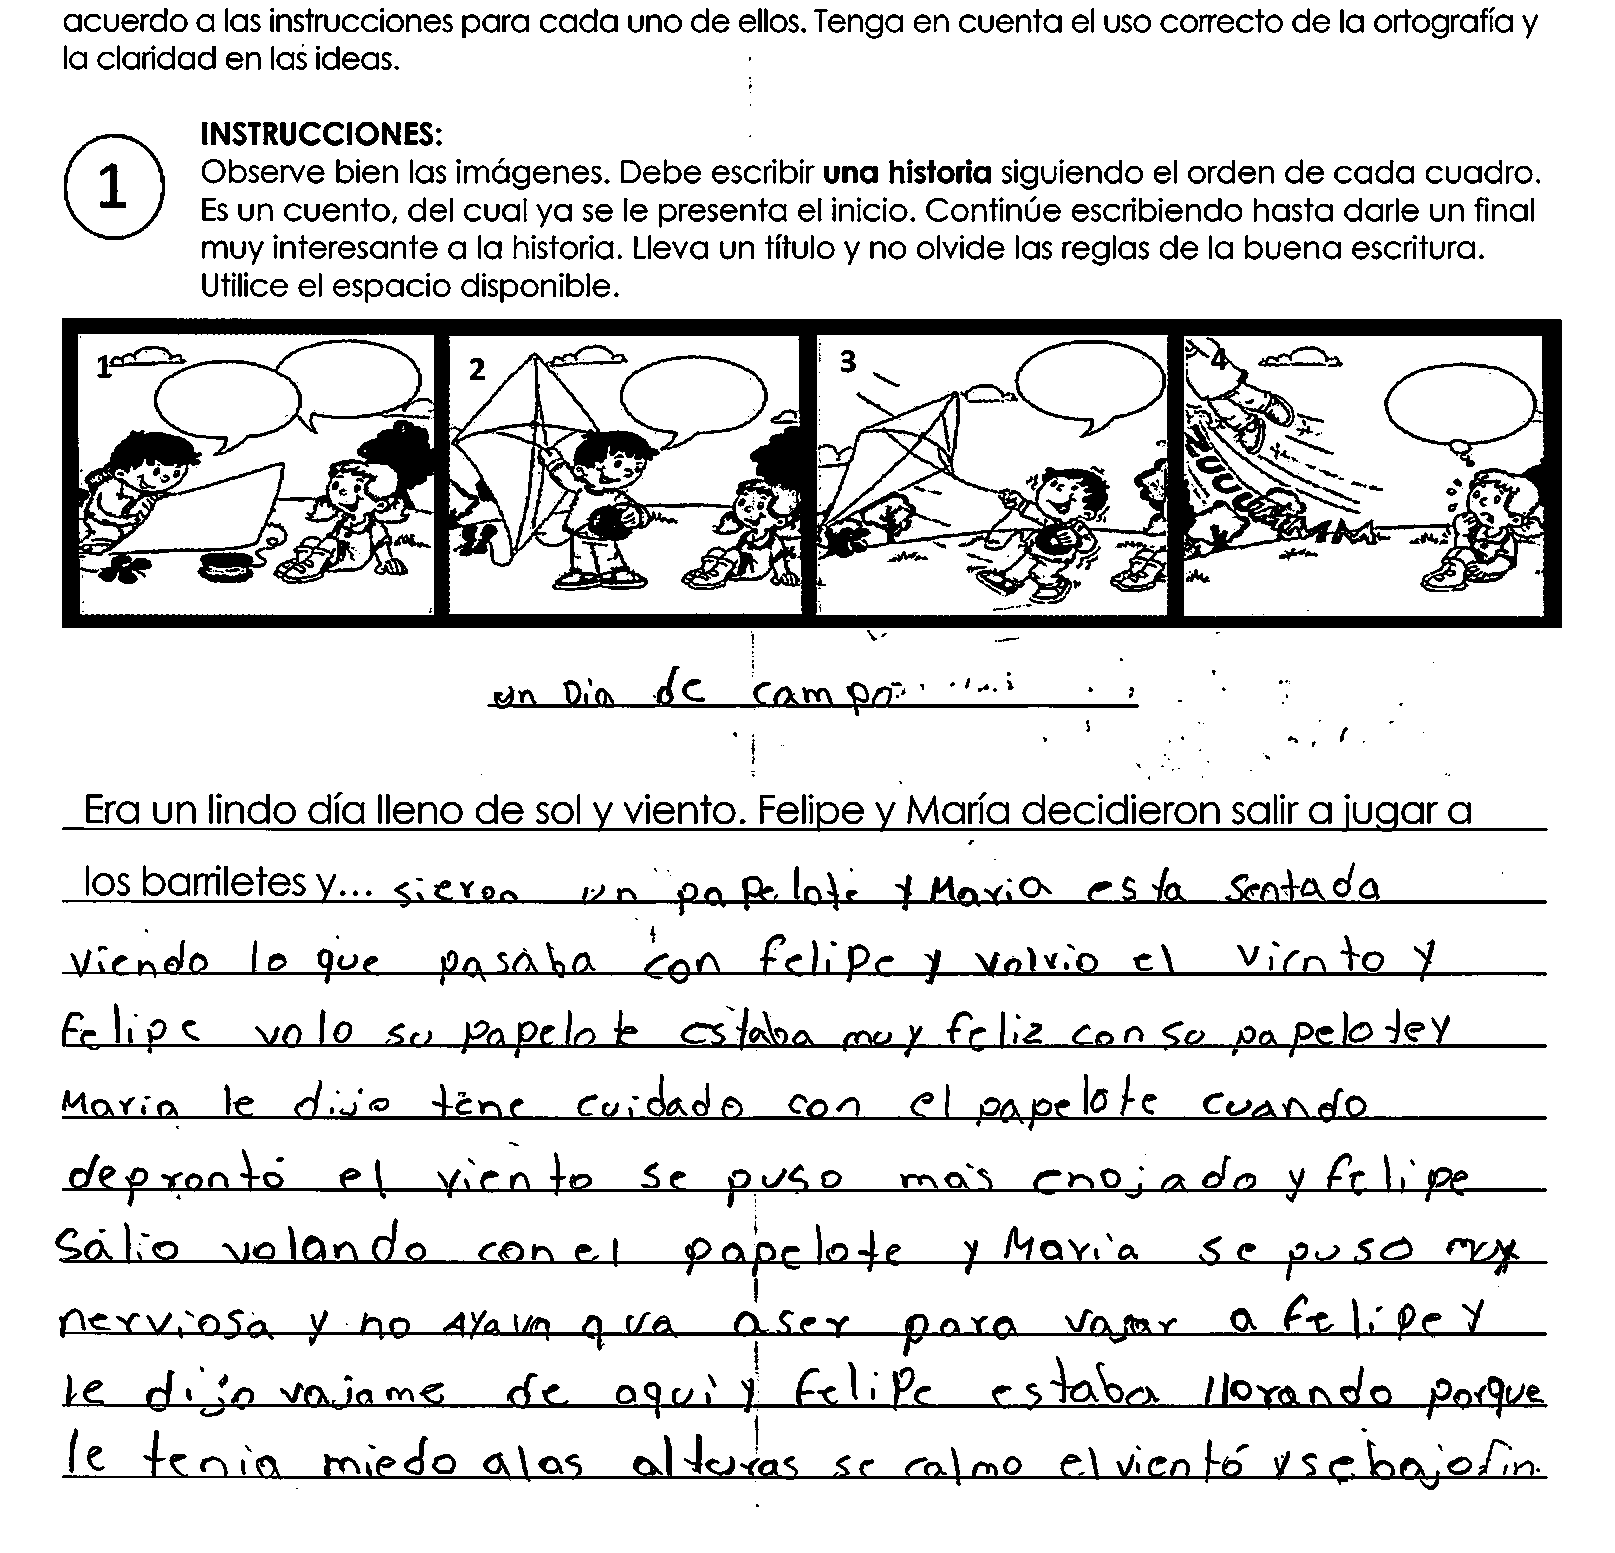 acuerdo a las instrucciones para cada uno de ellos. Tenga en cuenta el uso correcto de la ortografía y
la claridad en las ideas.
1
INSTRUCCIONES:
Observe bien las imágenes. Debe escribir una historia siguiendo el orden de cada cuadro.
Es un cuento, del cual ya se le presenta el inicio. Continúe escribiendo hasta darle un final
muy interesante a la historia. Lleva un título y no olvide las reglas de la buena escritura.
Utilice el espacio disponible.
1 2 3 4
un Dia de campo
Era un lindo día lleno de sol y viento. Felipe y María decidieron salir a jugar a
los barriletes y... sieron un papelote y Maria esta sentada
viendo lo que pasaba con felipe y volvio el viento y
Felipe volo su papelote estaba muy feliz con su papelote y
Maria le dijo tene cuidado con el papelote cuando
depronto el viento se puso mas enojado y felipe
salio volando con el papelote y Maria se puso muy
nerviosa y no aser para a felipe y
le dijo vajame de aqui y felipe estaba llorando porque
le tenia miedo alas alturas se calmo el viento y se bajo fin.